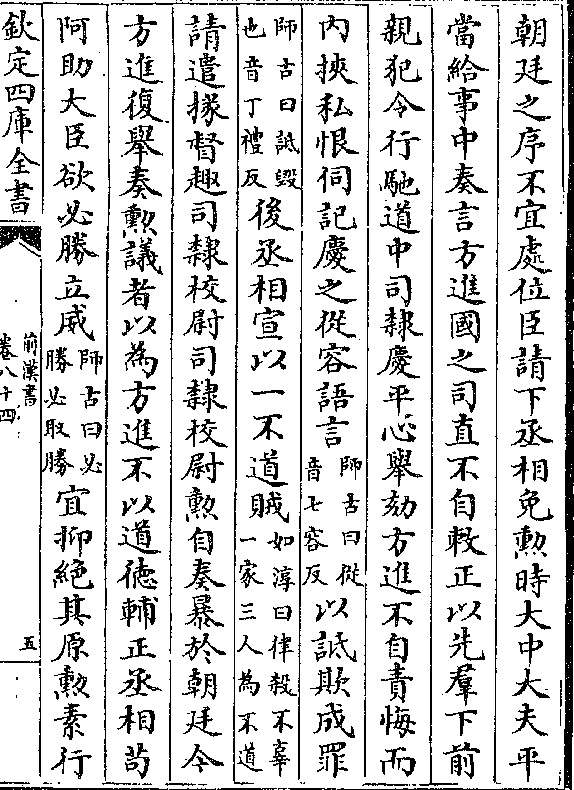 朝廷之序不宜處位臣請下丞相免勲時大中大夫平
當給事中奏言方進國之司直不自敕正以先羣下前
親犯令行馳道中司隸慶平心舉劾方進不自責悔而
内挾私恨伺記慶之從容語言師古曰從音七容反以詆欺成罪
師古曰詆毀也音丁禮反後丞相宣以一不道賊如淳曰律殺不辜一家三人為不道
請遣掾督趣司隸校尉司隸校尉勲自奏暴於朝廷今
方進復舉奏勲議者以為方進不以道徳輔正丞相苟
阿助大臣欲必勝立威師古曰必勝必取勝宜抑絶其原勲素行
欽定四庫全書
前漢書
卷八十四
五